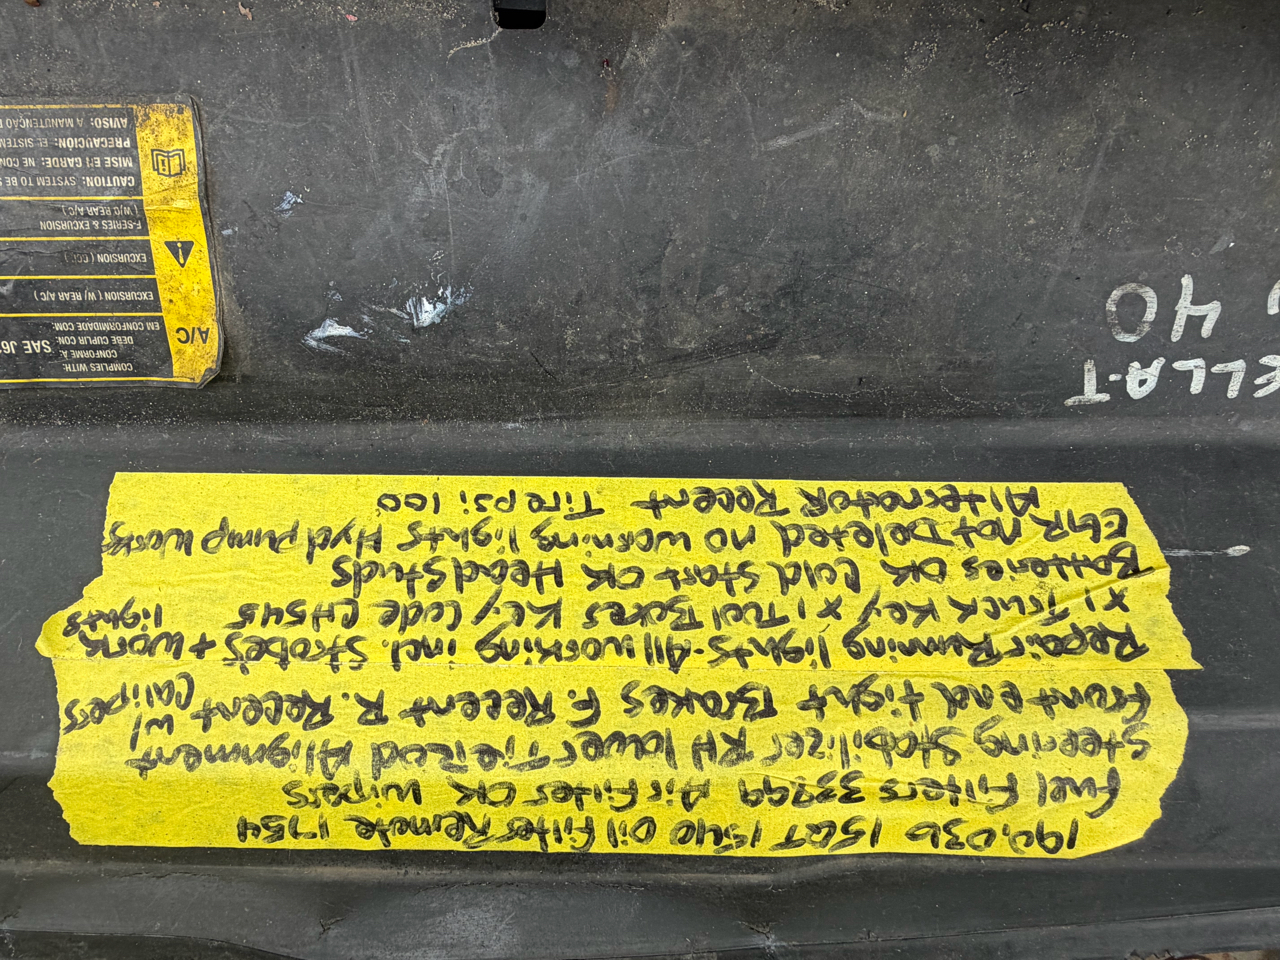 190,036 15QT 1540 Oil Filter Remote 1734
Fuel Filters 33899 Air Filter OK Wipers
Steering Stabilizer RH lower Tie Rod Alignment
Front end tight Brakes F. Recent R. Recent w/ calipers
Repair Running lights - All working incl. Strobes + work lights
X1 Truck Key X1 Tool Boxes Key Code CH545
Batteries OK Cold Start OK Head Studs
EGR not Deleted no warning lights Hyd Pump Works
Alternator Recent Tire psi 100
ELLA-T
40
A/C
COMPLIES WITH:
CONFORME A:
DEBE CUPLIR CON:
EM CONFORMIDADE COM:
SAE J6
EXCURSION ( W/ REAR A/C )
EXCURSION ( CCL )
F-SERIES & EXCURSION
( W/C REAR A/C )
CAUTION: SYSTEM TO BE
MISE EN GARDE: NE CON
PRECAUCIÓN: EL SISTEM
AVISO: A MANUTENÇÃO